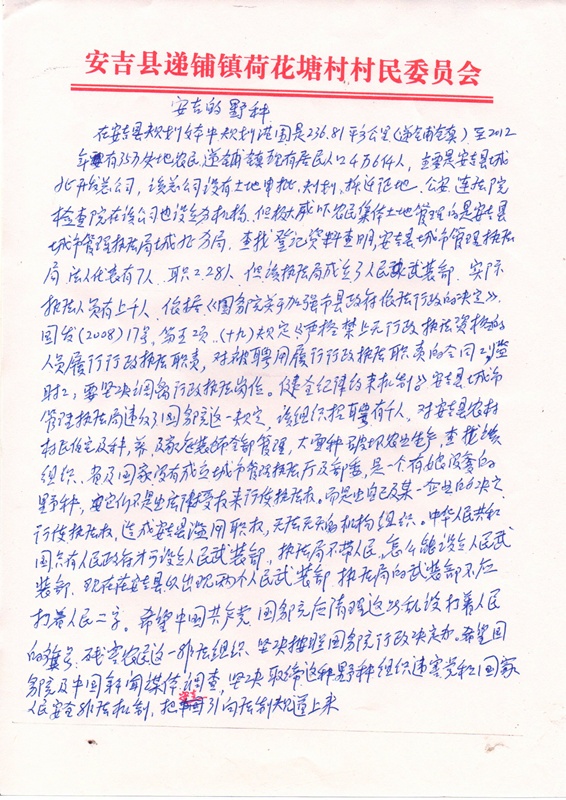 安吉县递铺镇荷花塘村村民委员会
安吉的野种
在安吉县规划文本中规划范围是236.81平方公里(递铺镇)至2012
年有35万失地农民递铺镇现有居民人口47614人,主要是安吉县城
北开发总公司,该总公司设有土地审批、规划、拆迁征地、公安、连法院
检查院在该公司也设立分机构,但极大威吓农民集体土地管理的是安吉县
城市管理执法局城北分局,查找登记资料查明,安吉县城市管理执法
局,法人代表有7人,职工228人,但该执法局成立了人民武装部,实际
执法人员有上千人,依据《国务院关于加强市县政府依法行政的决定》,
国发(2008)17号,第五项、(十九)规定《严格禁止无行政执法资格的
人员履行行政执法职责,对被聘用履行行政执法职责的合同工、临
时工,要坚决调离行政执法岗位。健全纪律约束机制》安吉县城市
管理执法局违反了国务院这一规定,该组织招聘有千人,对安吉县农村
村民住宅及种,养,及家庭装饰全部管理,大面种破坏农业生产,查找该
组织,省及国家没有成立城市管理执法厅及部委,是一个有娘没爹的
野种,由它们不是由法律授权来行使执法权。而是由自己及某一企业的决定
行使执法权,造成安吉县滥用职权,无法无天的机构组织。中华人民共和
国只有人民政府才可设立人民武装部,执法局不带人民,怎么能设立人民武
装部,现在在安吉县以出现两个人民武装部,执法局的武装部不应
打着人民二字。希望中国共产党国务院应清理这些乱设打着人民
的旗号,残害农民这一非法组织,坚决按照国务院行政决定办。希望国
务院及中国新闻媒体调查,坚决取缔这种野种组织违害党和国家
人民安全非法机制,把安吉引向法制轨道上来